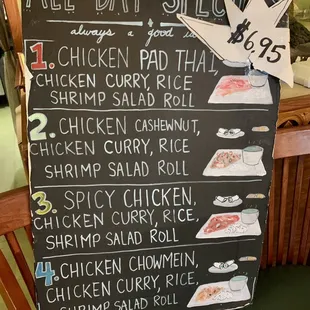 ALL DAY SPECI
always a good
$6.95
1. CHICKEN PAD THAI,
CHICKEN CURRY, RICE
SHRIMP SALAD ROLL
2. CHICKEN CASHEWNUT,
CHICKEN CURRY, RICE
SHRIMP SALAD ROLL
3. SPICY CHICKEN,
CHICKEN CURRY, RICE,
SHRIMP SALAD ROLL
4. CHICKEN CHOWMEIN,
CHICKEN CURRY, RICE,
SHRIMP SALAD ROLL